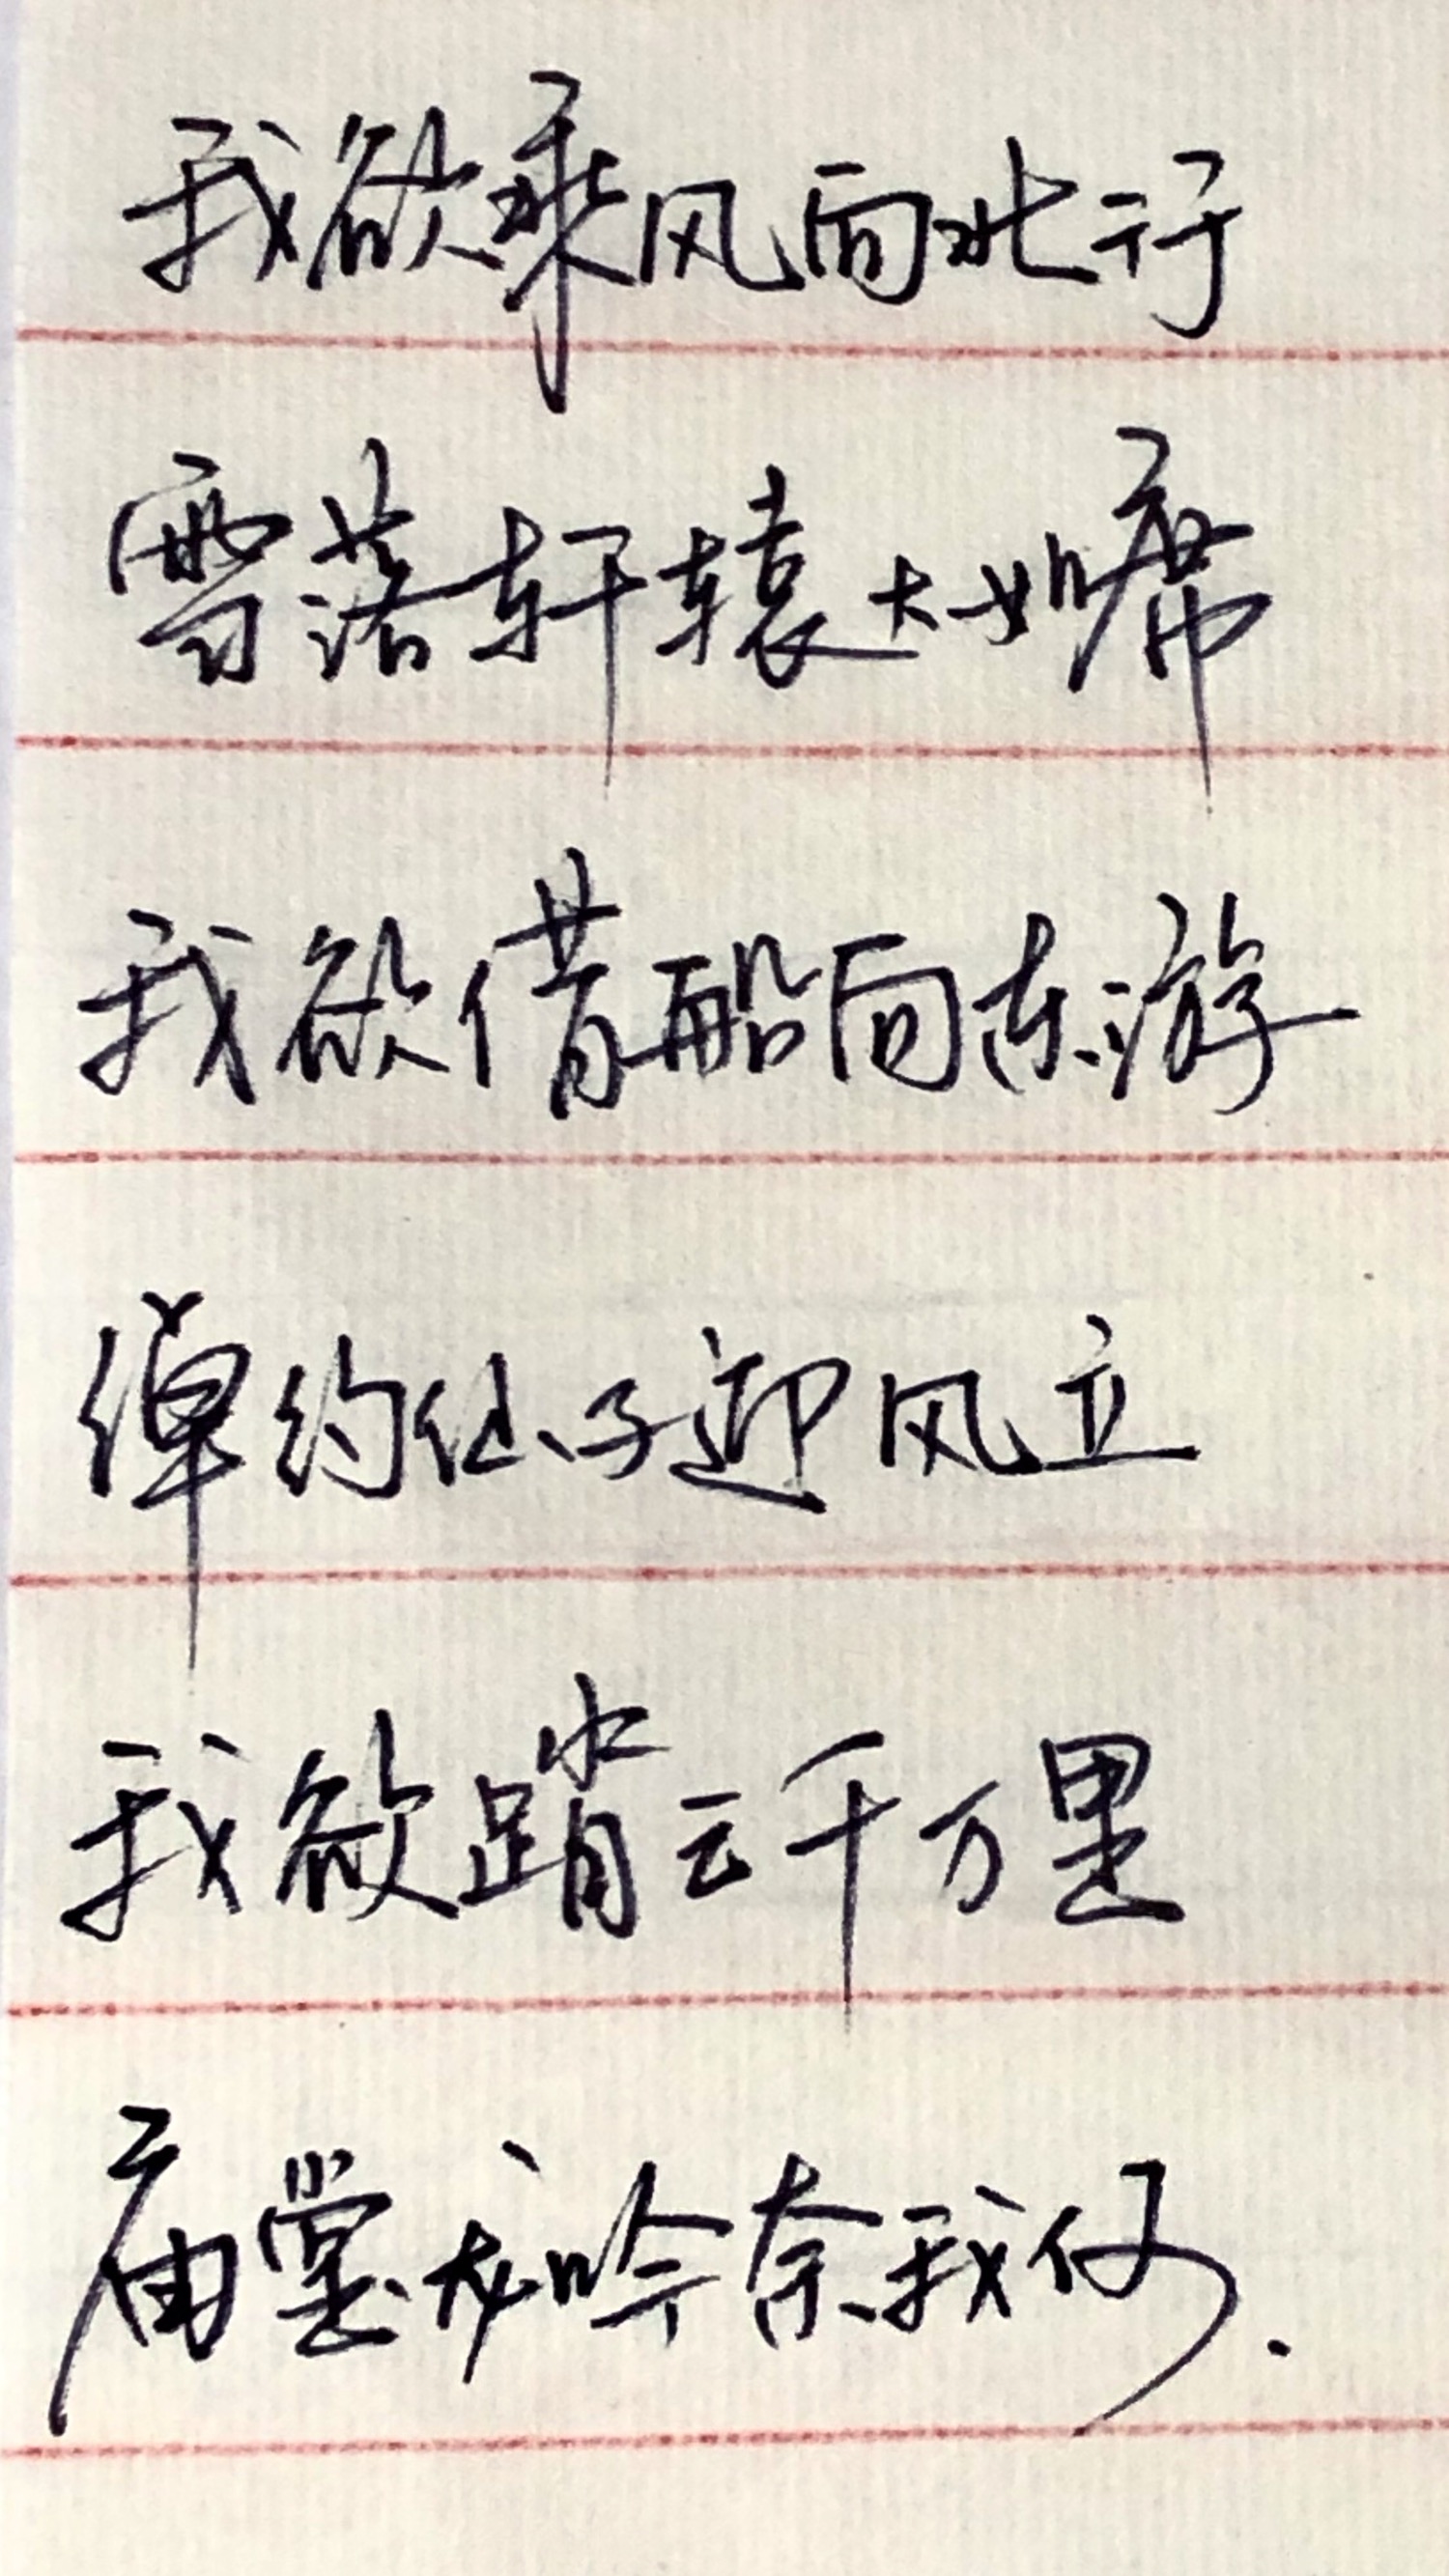 我欲乘风向北行
雪落轩辕大如席
我欲借船向东游
绰约仙子迎风立
我欲踏云千万里
庙堂龙吟奈我何.